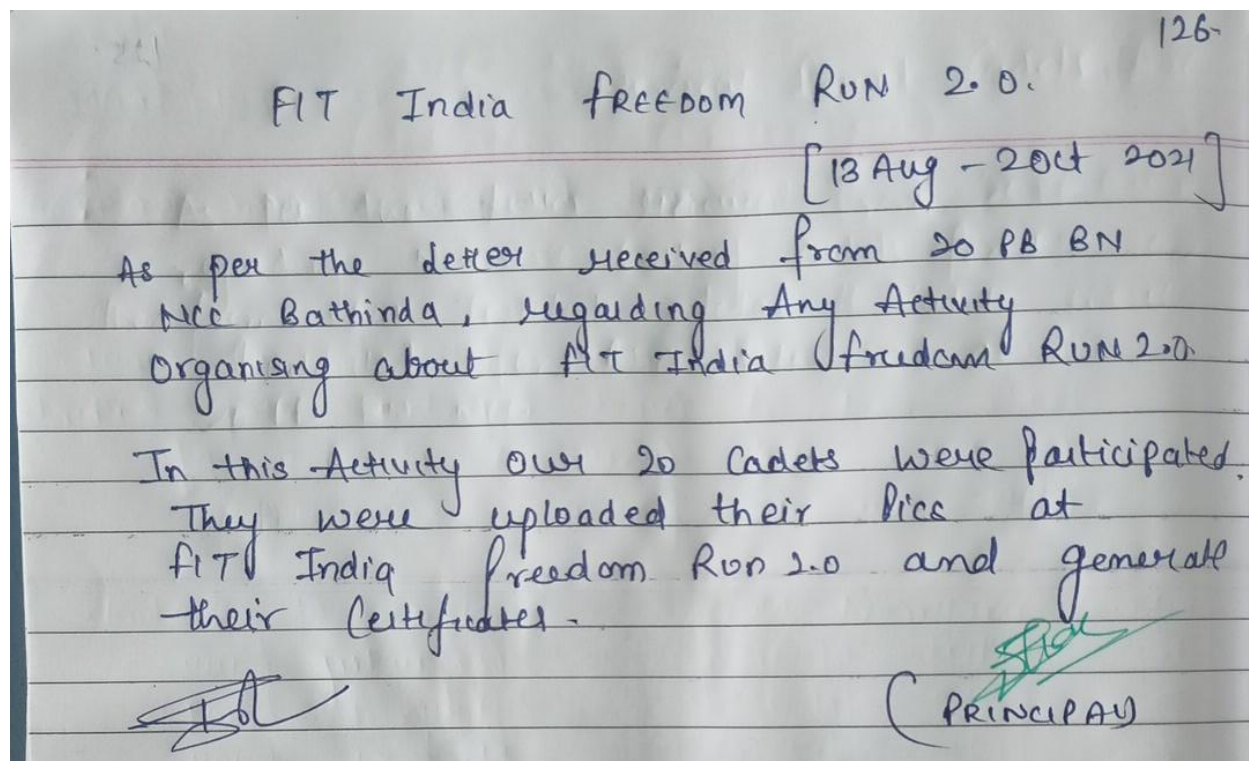 126-
FIT India fREEDOM RUN 2.0.
[13 Aug - 2 Oct 2021]
As per the letter received from 20 PB BN
NCC Bathinda, regarding Any Activity
Organising about FIT India freedom RUN 2.0.
In this Activity our 20 Cadets were Participated.
They were uploaded their Pics at
FIT India freedom Run 2.0 and generate
their Certificates.
(PRINCIPAL)